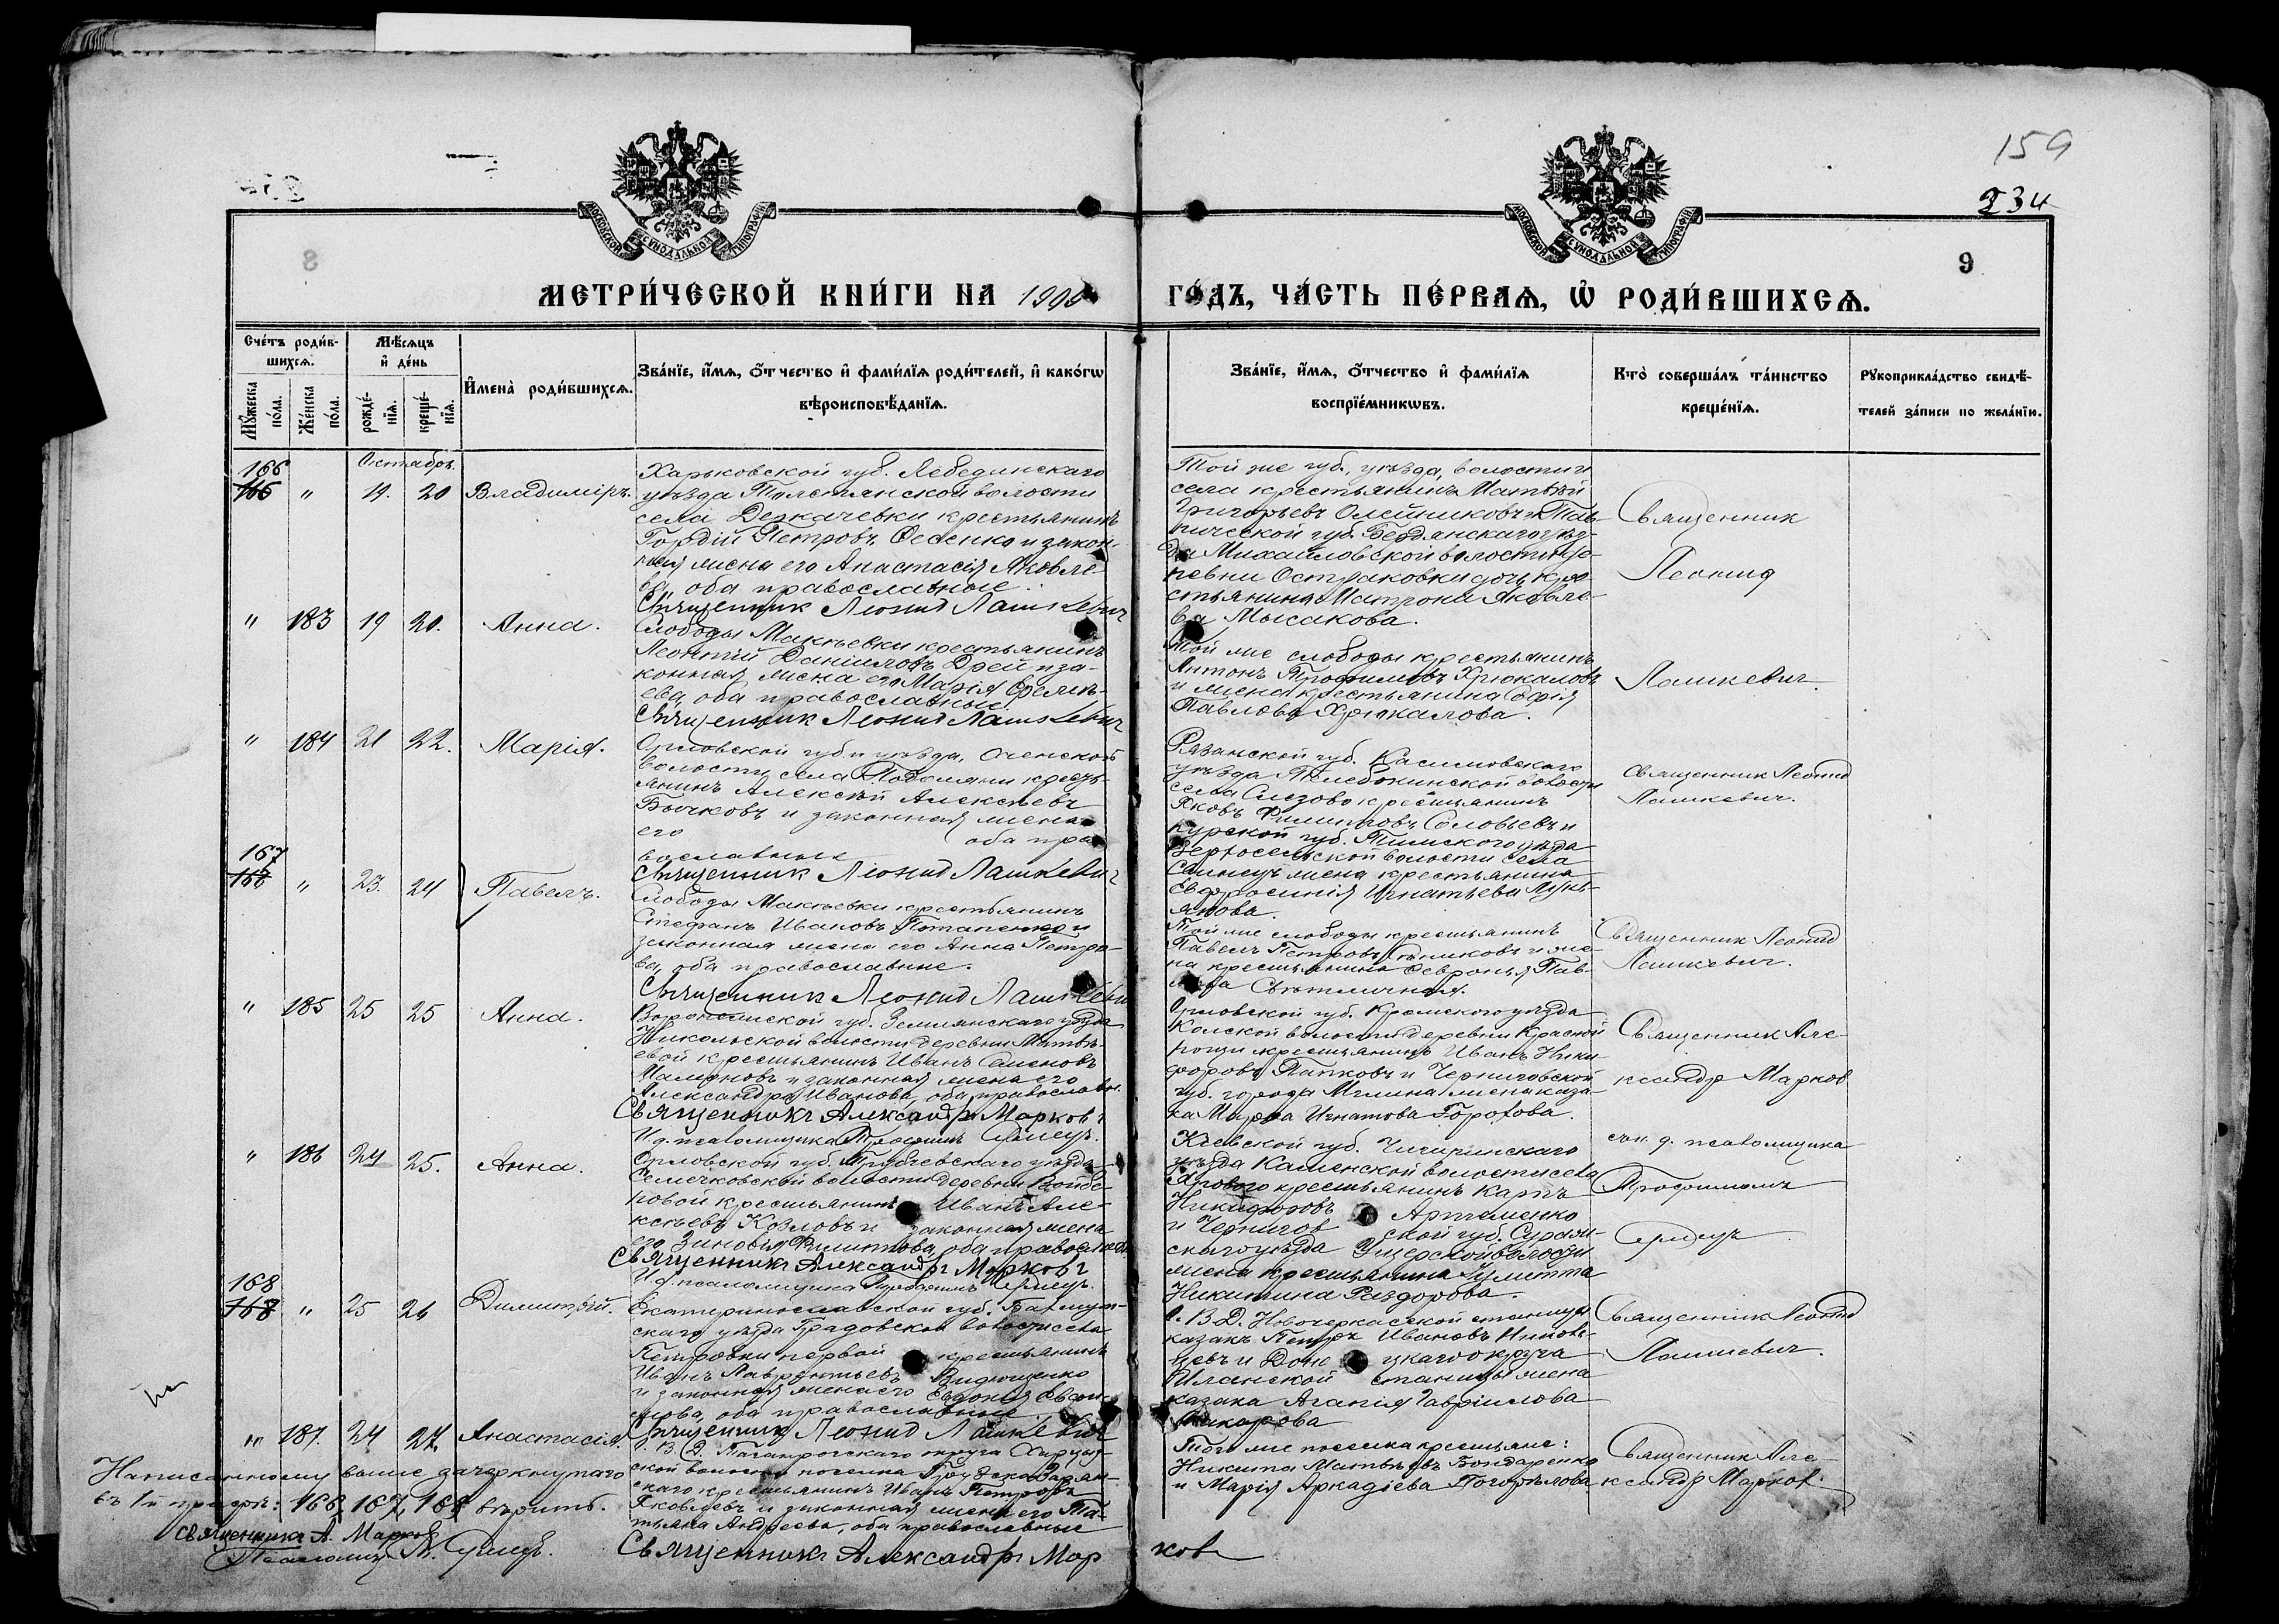 159
234
9
МОСКОВСКОЙ СУНОДАЛЬНОЙ ТИПОГРАФІИ
МОСКОВСКОЙ СУНОДАЛЬНОЙ ТИПОГРАФІИ
МЕТРИ́ЧЕСКОЙ КНИ́ГИ НА
ГО́ДЪ, ЧА́СТЬ ПЕ́РВАѦ, Ѡ҆ РОДИ́ВШИХСѦ.
Сче́тъ роди́в-
шихсѧ.
Мꙋ́жеска по́ла.
Же́нска по́ла.
Мѣ́сѧцъ
и҆ де́нь
рожде́-
нїѧ.
креще́-
нїѧ.
И҆мена̀ роди́вшихсѧ.
Зва́нїе, и҆́мѧ, ѻ҆́тчество и҆ фами́лїѧ роди́телей, и҆ како́гѡ
вѣроисповѣ́данїѧ.
Зва́нїе, и҆́мѧ, ѻ҆́тчество и҆ фами́лїѧ
воспрїе́мникѡвъ.
Кто̀ соверша́лъ та́инство
креще́нїѧ.
Рꙋкоприкла́дство свидѣ́-
телей за́писи по жела́нїю.
Октябрь.
166
166 " 19. 20 Владиміръ.
Харьковской губ. Лебединскаго
уѣзда Толстянской волости
села Деркачевки крестьянинъ
Гордій Петровъ Фесенко и закон-
ная жена его Анастасія Яковле-
ва, оба православные.
Священникъ Леонид Лашкевич
Той же губ., уѣзда, волости и
села крестьянинъ Матѳей
Григорьевъ Олейниковъ и Тав-
рической губ. Бердянскаго уѣз-
да Михайловской волости
дочь кре-
стьянина Матрона Яковле-
ва Мысакова.
Священник
Леонид
Лашкевич.
" 183 19 20. Анна.
Слободы Макѣевки крестьянинъ
Леонтій Даніиловъ Дрей и за-
конная жена его Марія
ева, оба православные.
Священник Леонид Лашкевич
Той же слободы крестьянинъ
Антонъ Трофимовъ Хрюкаловъ
и жена крестьянина Софія
Павлова Хрюкалова.
" 184 21 22. Марія.
Орловской губ. и уѣзда,
волости, села Подоляни кресть-
янинъ Алексѣй Алексѣевъ
Бычковъ и законная жена
его оба пра-
вославные
Священник Леонид Лашкевич
Рязанской губ. Касимовскаго
уѣзда волости
села крестьянинъ
Яковъ Филипповъ Соловьевъ и
Курской губ. Тимскаго уѣзда
волости села
жена крестьянина
Евфросинія Игнатьева
Священник Леонид
Лашкевич.
167
166 " 23. 24 Павелъ.
Слободы Макѣевки крестьянинъ
Стефанъ Ивановъ Потапенко и
законная жена его Анна Петро-
ва, оба православные.
Священник Леонид Лашкевич
Той же слободы крестьянинъ
Павелъ Петровъ и же-
на крестьянина Февронья Пав-
лова Свѣтличная.
Священник Леонид
Лашкевич.
" 185 25 25 Анна.
Воронежской губ. Землянскаго уѣзда
Никольской волости деревни
крестьянинъ Иванъ Семеновъ
и законная жена его
Александра Иванова, оба православн.
Священникъ Александръ Марковъ
И. д. псаломщика Трофимъ
Орловской губ. Кромскаго уѣзда
волости деревни Красной
рощи крестьянинъ Иванъ Ники-
форовъ Папковъ и Черниговской
губ. города Мглина жена каза-
ка Марфа Игнатова Горохова.
Священник Але-
ксандр Марков
с и. д. псаломщика
Трофимом
" 186 24 25. Анна.
Орловской губ. Трубчевскаго уѣзда
Семечковской волости деревни
крестьянинъ Иванъ Але-
ксѣевъ Козловъ и законная жена
его Зиновія Филиппова, оба православн.
Священникъ Александръ Марковъ
И. д. псаломщика Трофимъ
Кіевской губ. Чигиринскаго
уѣзда Каменской волости села
крестьянинъ Карпъ
Никифоровъ Артеменко
и Черниговской губ. Сураж-
скаго уѣзда волости
жена крестьянина Улитта
Никитина Раздорова.
168
167 " 25 26 Димитрій.
Екатеринославской губ. Бахмут-
скаго уѣзда Градовской волости села
Петровки первой крестьянинъ
Иванъ Лаврентьевъ
и законная жена его Евдокія
оба православные
Священник Леонид Лашкевич
О. В. Д. Новочеркасской станицы
казакъ Петръ Ивановъ
и Донецкаго округа
станицы жена
казака Агапія Гавріилова
Макарова
Священник Леонид
Лашкевич.
" 187. 24 27. Анастасія.
О. В. Д. Таганрогскаго округа
ской волости поселка
скаго крестьянинъ Иванъ Петровъ
Яковлевъ и законная жена его Та-
тьяна Андреева, оба православные
Священникъ Александръ Мар ковъ
Того же поселка крестьяне:
Никита Матвѣевъ Бондаренко
и Марія Аркадіева Погорѣлова
Священник Але-
ксандр Марков.
Написанному выше зачеркнутаго
въ 1й графѣ: 166, 167, 168 вѣрить.
Священникъ А. Марковъ
Псаломщ.